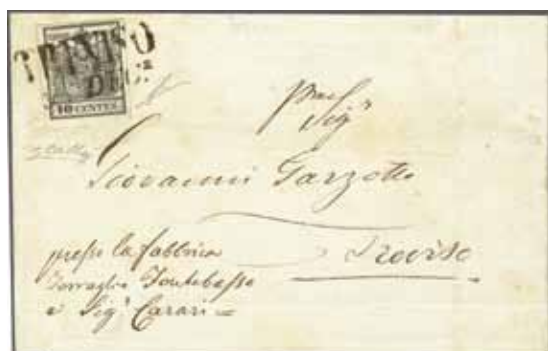 TREVISO
DEC.
10 CENTES.
Sigr
Giovanni Garzotto
Treviso
presso la fabbrica
Fontebasso
e Sigr Carari =